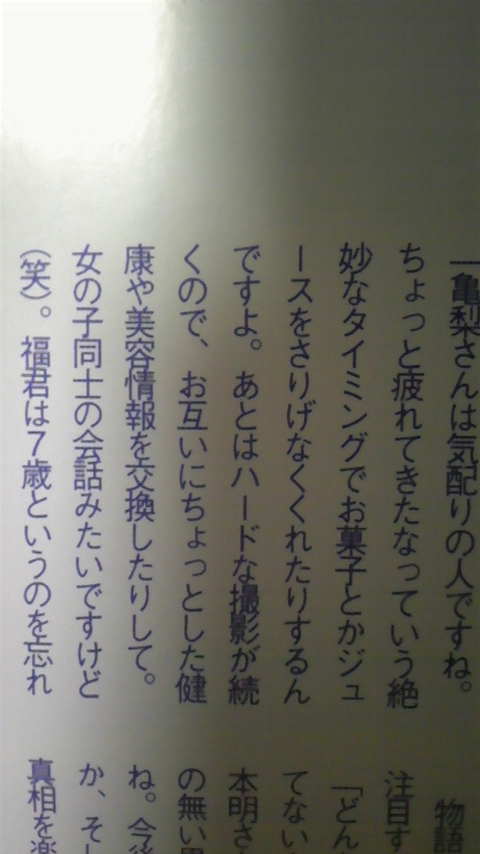 ―亀梨さんは気配りの人ですね。
ちょっと疲れてきたなっていう絶
妙なタイミングでお菓子とかジュ
ースをさりげなくくれたりするん
ですよ。あとはハードな撮影が続
くので、お互いにちょっとした健
康や美容情報を交換したりして。
女の子同士の会話みたいですけど
(笑)。福君は7歳というのを忘れ
物語
注目す
「どん
てない
本明さ
の無い
ね。今後
か、そし
真相を楽